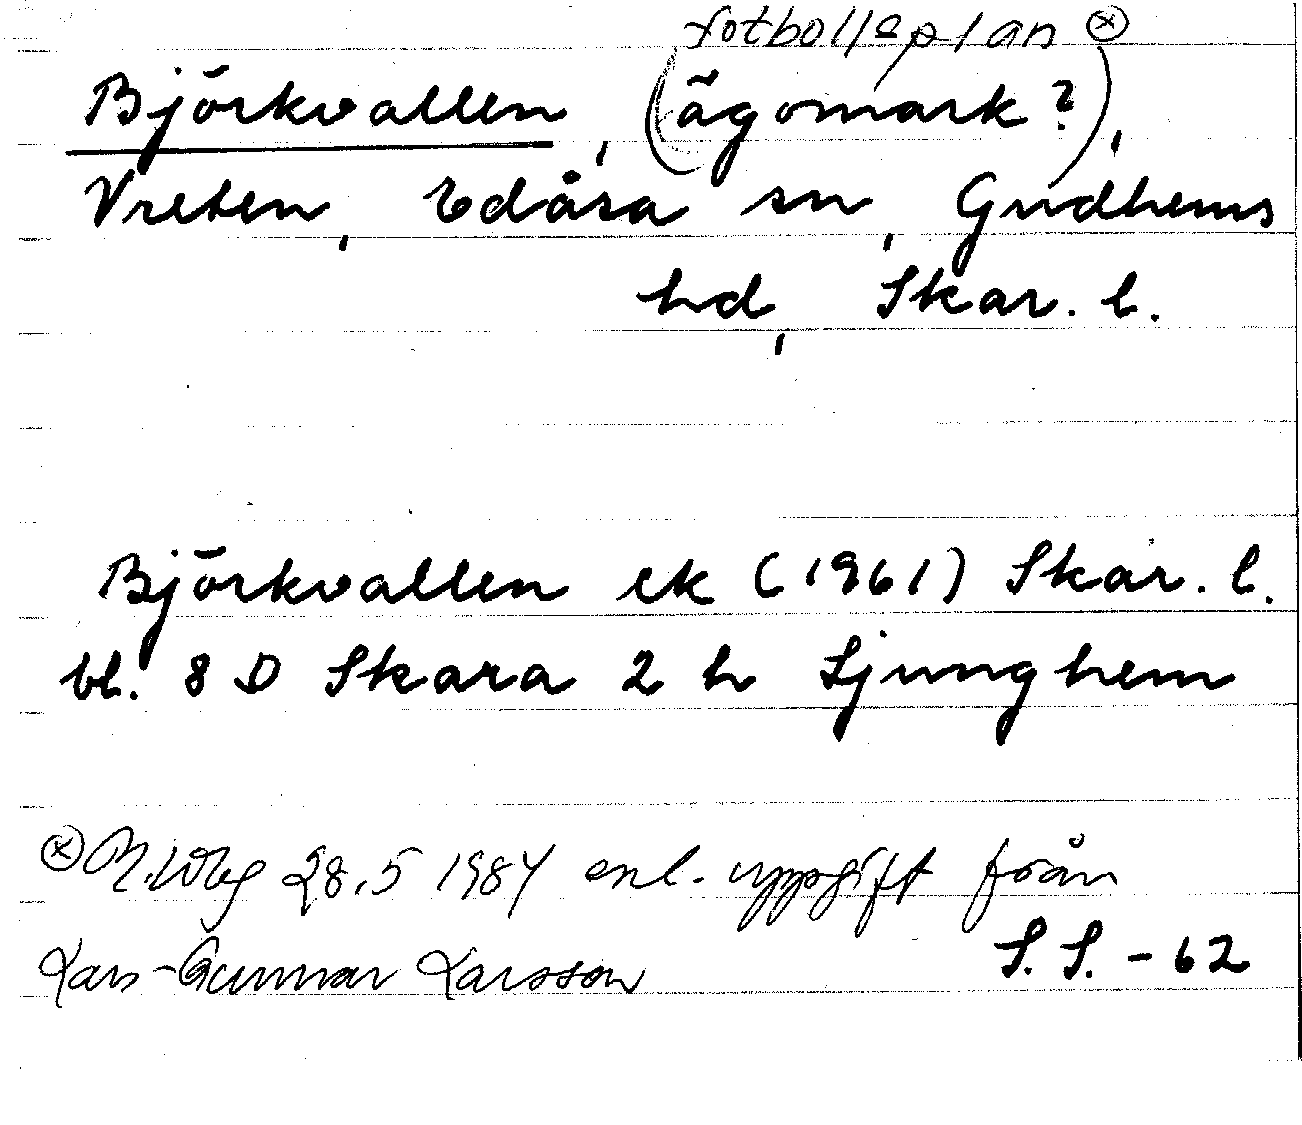 fotbollsplan ⊗
Björkvallen, (ägomark?),
Vreten, Edåsa sn, Gudhems
hd, Skar. l.
Björkvallen ek (1961) Skar. l.
bl. 8 D Skara 2 h Ljunghem
⊗ 28.5 1984 enl. uppgift från
Lars-Gunnar Larsson
S.S. - 62